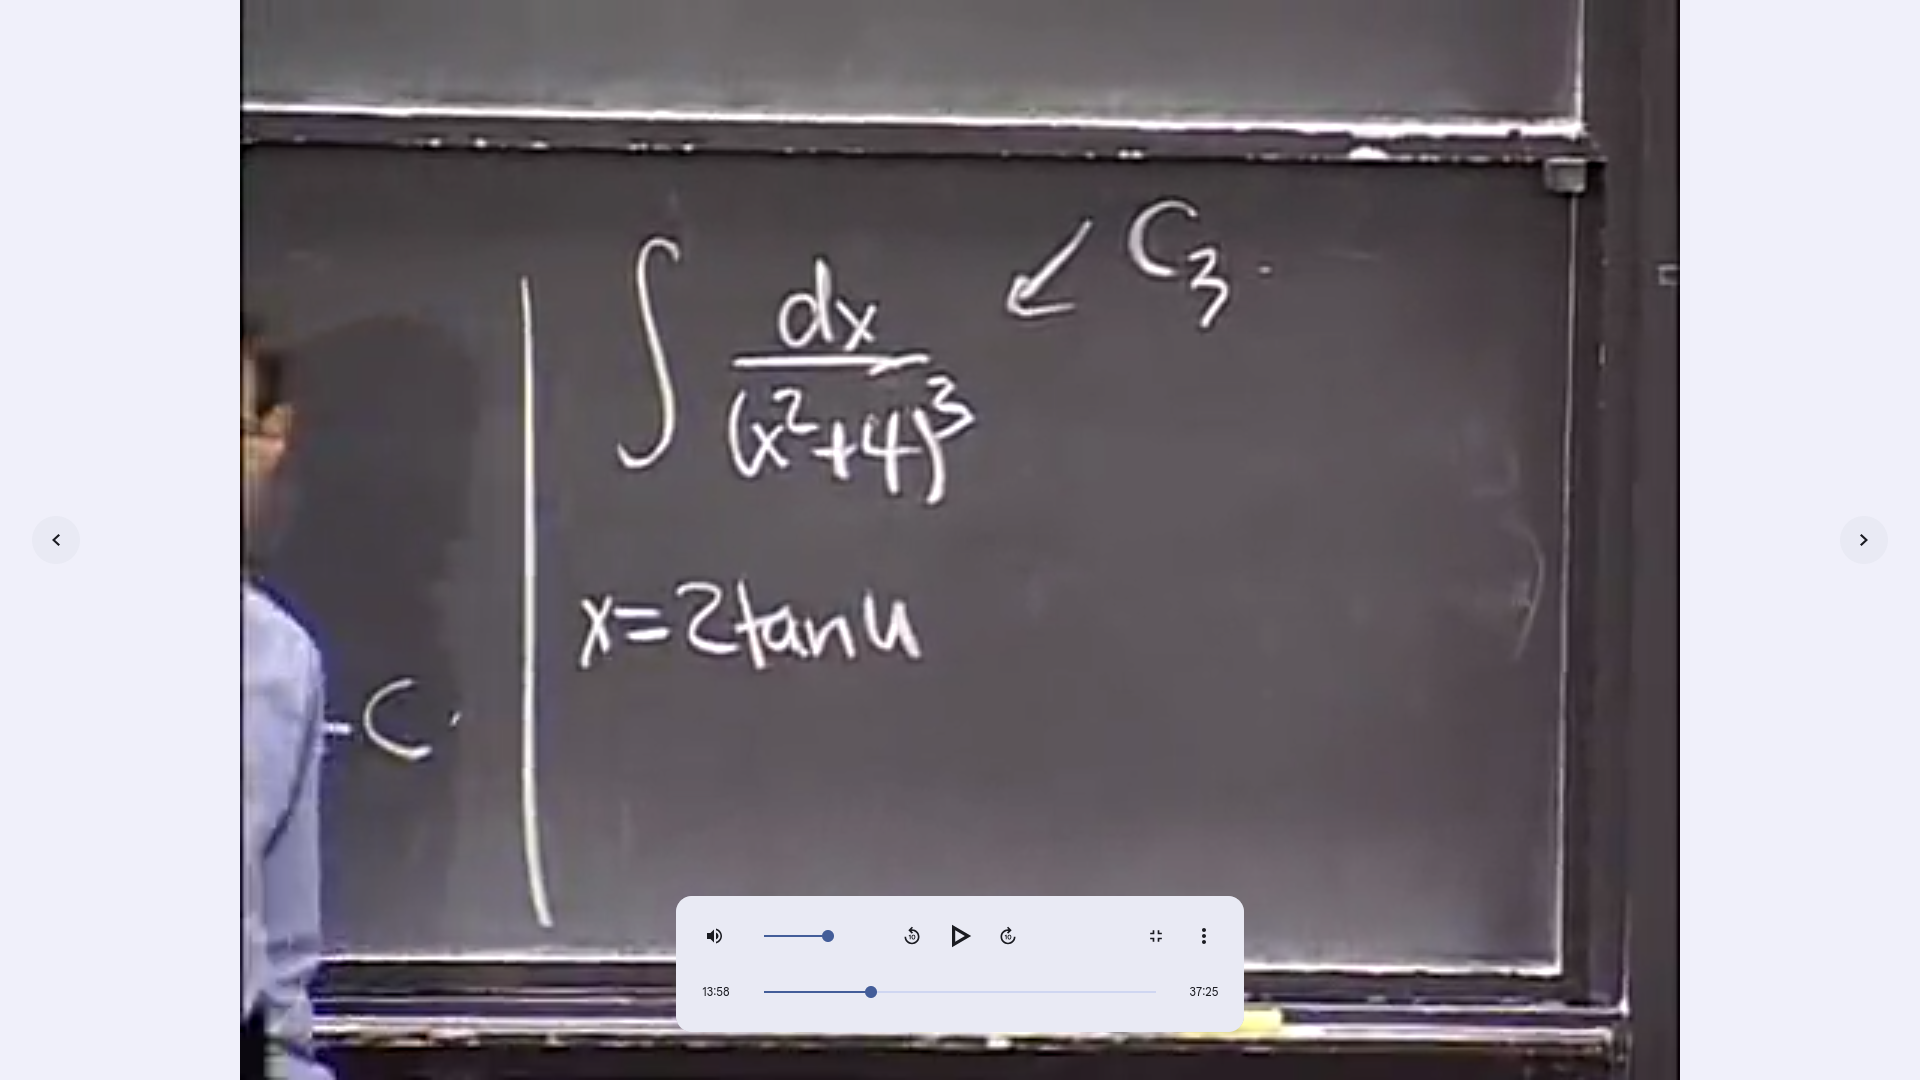 ∫ dx / (x²+4)³ ↙ C₃.
x=2tan u
-C.
10
10
13:58
37:25